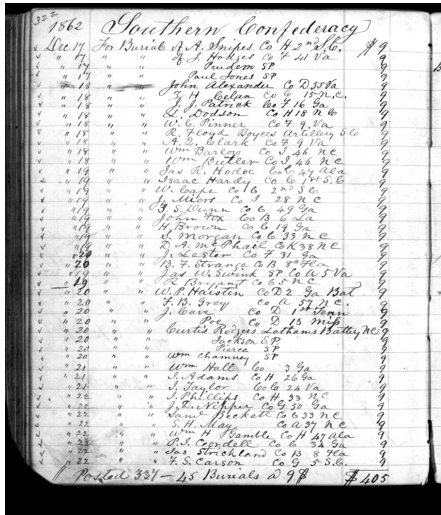 322
1862 Southern Confederacy
Dec 17 For Burial of A. Snipes Co H 2nd S.C. $ 9
" 17 " " " J. Hodges Co F 41 Va 9
" 17 " " " Prudem SP 9
" 17 " " " Paul Jones SP 9
" 18 " " " John Alexander Co D 55 Va 9
" 18 " " " Co C 15 N.C. 9
" 18 " " " J. Patrick Co F 16 Ga 9
" 18 " " " Dodson Co H 18 N C 9
" 18 " " " W. C. Pinner Co F 9 Va 9
" 18 " " " R. Floyd Boyces Artillery S Co 9
" 18 " " " A. Q. Clark Co F 9 Va 9
" 18 " " " Wm Barlow Co I 46 N C 9
" 18 " " " Wm Butler Co I 46 N C 9
" 18 " " " Jas R. Hodoe Co C 47 Ala 9
" 19 " " " Isaac Hardy Co C 1st S.C 9
" 19 " " " W. Cape Co C 2nd S C 9
" 19 " " " J. Co I 28 N C 9
" 19 " " " Dunn Co C 49 Ga 9
" 19 " " " John Fox Co B 6 La 9
" 19 " " " H. Brown Co G 19 Ga 9
" 19 " " " Morgan Co C 33 N C 9
" 19 " " " D. A. McPhail Co K 38 N C 9
" 20 " " " J. Lester Co F 31 Ga 9
" 20 " " " B. F. Strange Co B 8 Fla 9
" 19 " " " Jas W. Swink SP Co A 5 Va 9
" 19 " " " R Bryant Co C 5 N C 9
" 20 " " " W. P. Co D 2 Ga Bat 9
" 20 " " " F. B. Grey Co A 57 N C. 9
" 20 " " " J. Cave Co D 1st Tenn 9
" 20 " " " Poe Co D 13 Miss 9
" 20 " " " Curtis Rodgers Lathams Battery NC 9
" 20 " " " Jackson SP 9
" 20 " " " Pierce SP 9
" 20 " " " Wm Chamney SP 9
" 21 " " " Wm Hall Co 3 Ga 9
" 21 " " " J. Adams Co H 26 Ga 9
" 21 " " " J. Taylor Co C 24 Va 9
" 22 " " " Phillips Co H 33 N C 9
" 22 " " " Nipper Co G 50 Ga 9
" 22 " " " Saml Beckett Co C 33 N C 9
" 22 " " " S. H. May Co A 37 N C 9
" 22 " " " Wm H Gamble Co H 47 Ala 9
" 22 " " " P. J. Cordell Co C 34 Ga 9
" 22 " " " Jas Strichland Co B 8 Fla 9
" 22 " " " F. S. Carson Co G 5 S.C. 9
Posted 337 — 45 Burials @ 9$ $405